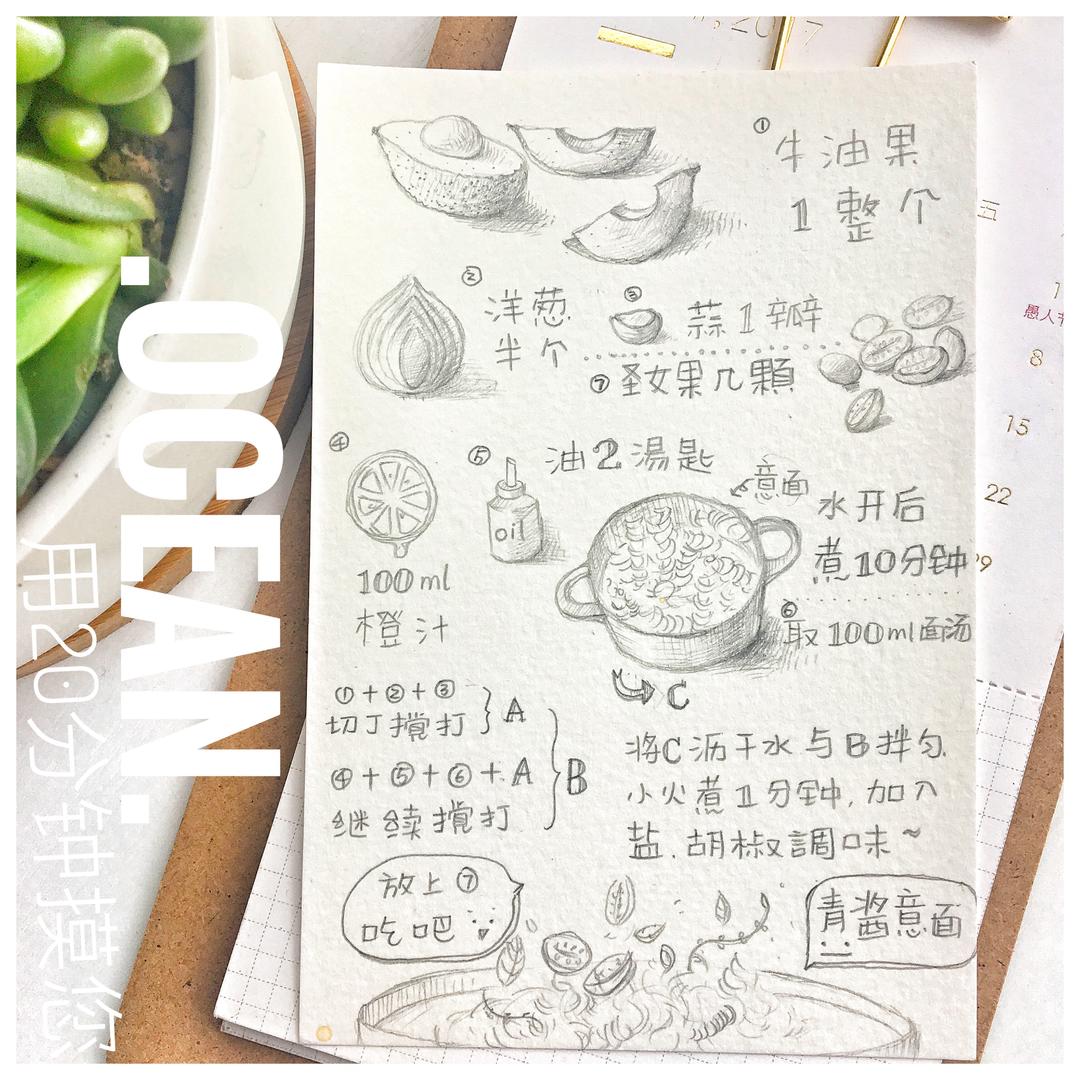 2017
① 牛油果
1 整个
② 洋葱
半个
③ 蒜 1 瓣
⑦ 圣女果几顆
④
100ml
橙汁
⑤ 油 2 湯匙
oil
意面
水开后
煮10分钟
⑥ 取100ml面汤
C
①+②+③
切丁攪打 } A
④+⑤+⑥+A
继续攪打
B
将C沥干水与B拌匀
小火煮1分钟,加入
盐.胡椒調味~
放上⑦
吃吧
青酱意面
.OCEAN.
用20分钟摸您
五
愚人节
8
15
22